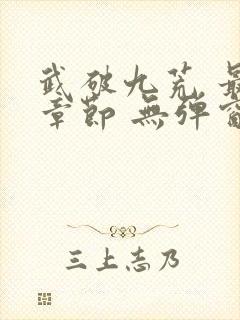 武破九荒 最
章節 無彈窗
三上志乃